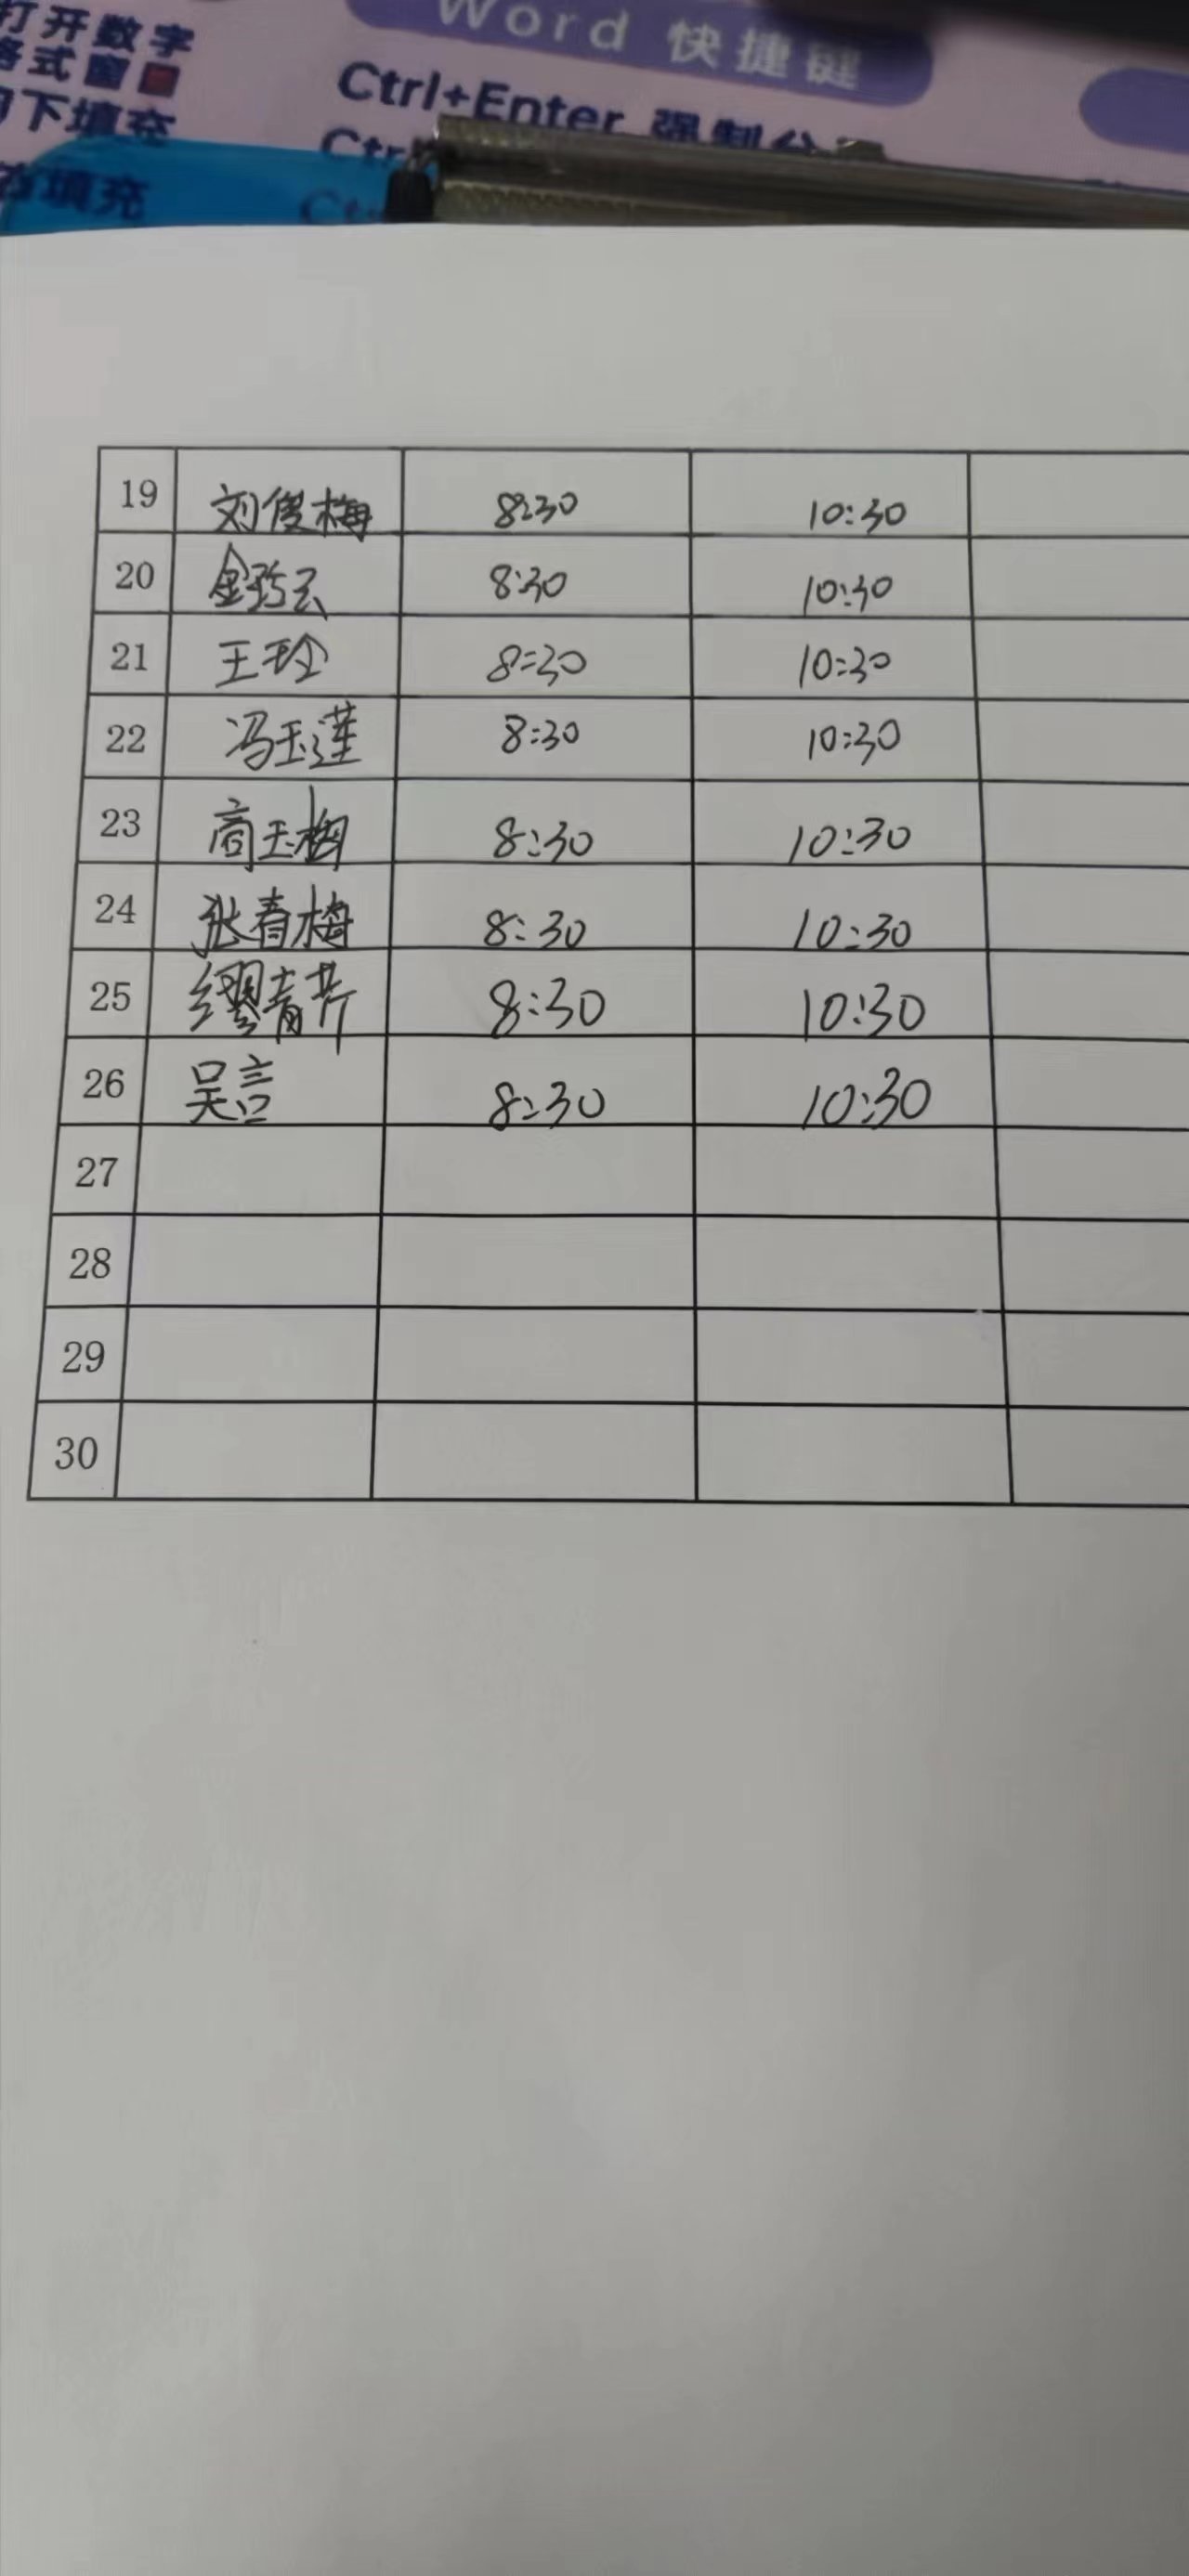 打开数字
格式窗
向下填充
填充
Word 快捷键
Ctrl+Enter 强制分
Ctr
Ct
19 刘俊梅 8:30 10:30
20 金 云 8:30 10:30
21 王玲 8:30 10:30
22 冯玉莲 8:30 10:30
23 商玉梅 8:30 10:30
24 张春梅 8:30 10:30
25 缪青芹 8:30 10:30
26 吴言 8:30 10:30
27
28
29
30